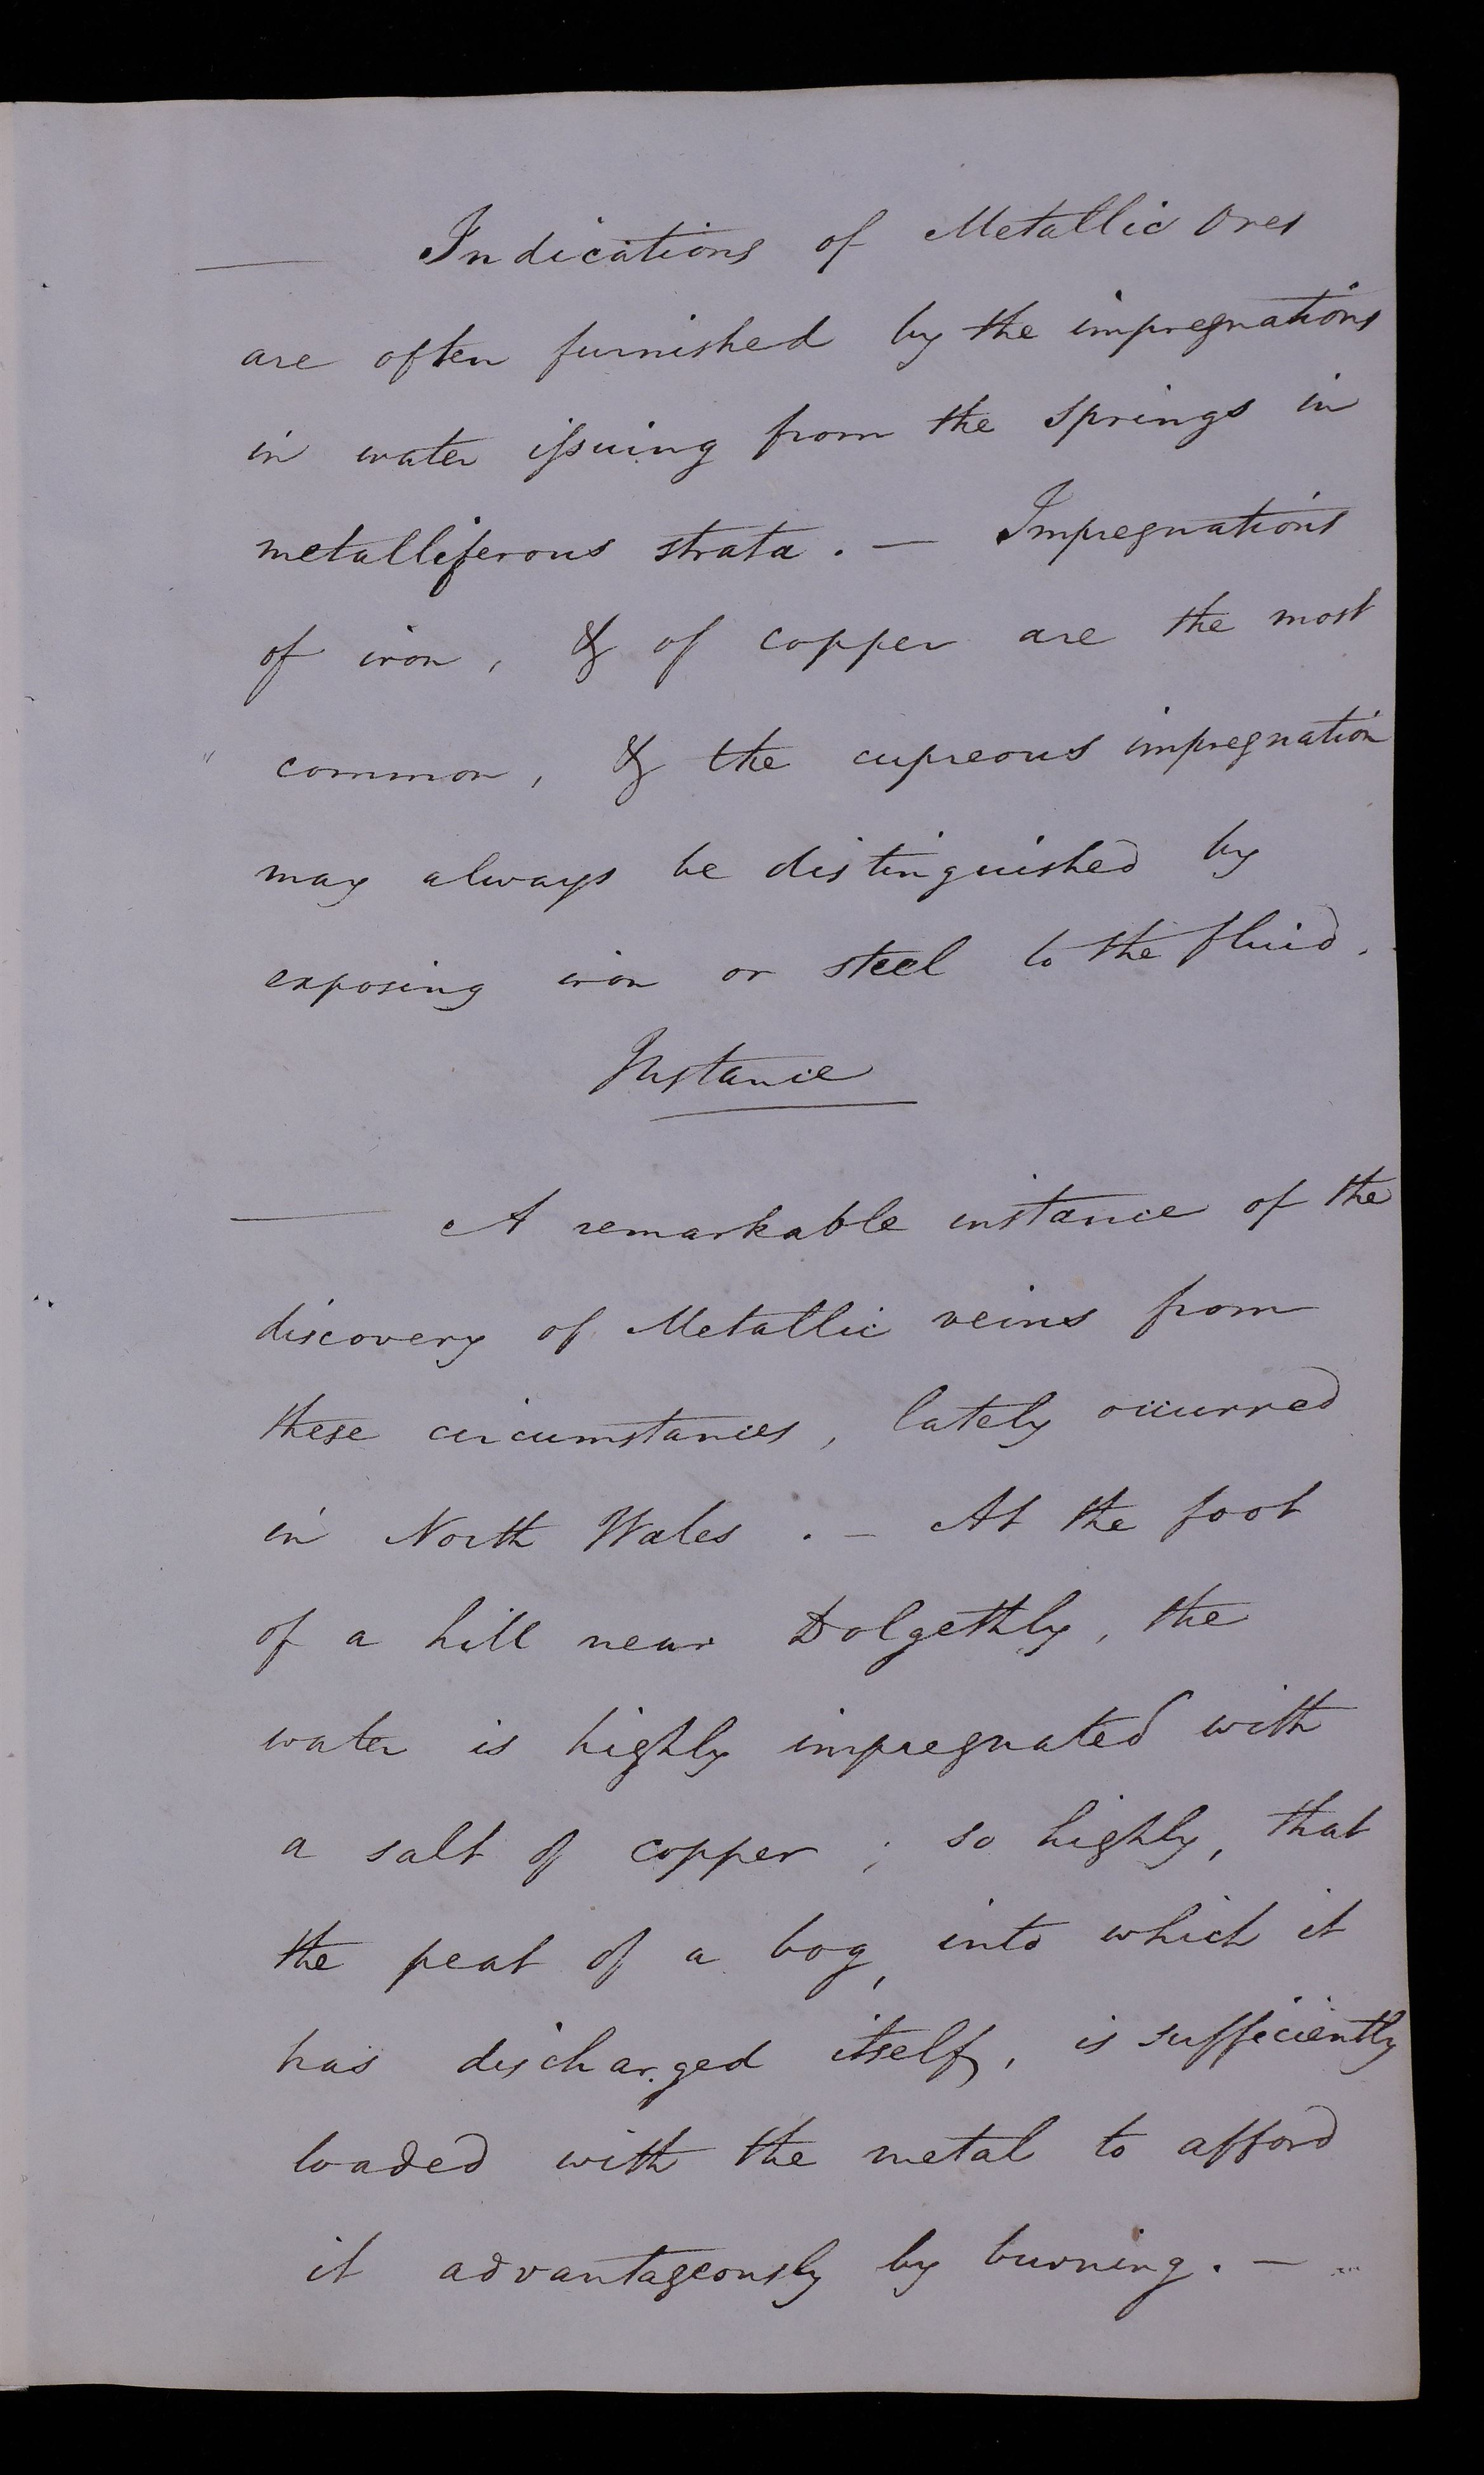 — Indications of Metallic Ores
are often furnished by the impregnations
in water issuing from the springs in
metalliferous strata. — Impregnations
of iron, & of copper are the most
common, & the cupreous impregnation
may always be distinguished by
exposing iron or steel to the fluid.
Instance
— A remarkable instance of the
discovery of Metallic veins from
these circumstances, lately occurred
in North Wales. — At the foot
of a hill near Dolgethly, the
water is highly impregnated with
a salt of copper; so highly, that
the peat of a bog, into which it
has discharged itself, is sufficiently
loaded with the metal to afford
it advantageously by burning. —